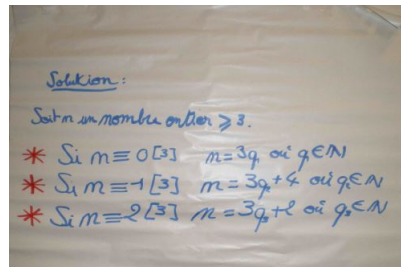 Solution :
Soit n un nombre entier ⩾ 3.
* Si n ≡ 0 [3] n = 3q₁ où q₁ ∈ ℕ
* Si n ≡ 1 [3] n = 3q₂ + 4 où q₂ ∈ ℕ
* Si n ≡ 2 [3] n = 3q₃ + 2 où q₃ ∈ ℕ